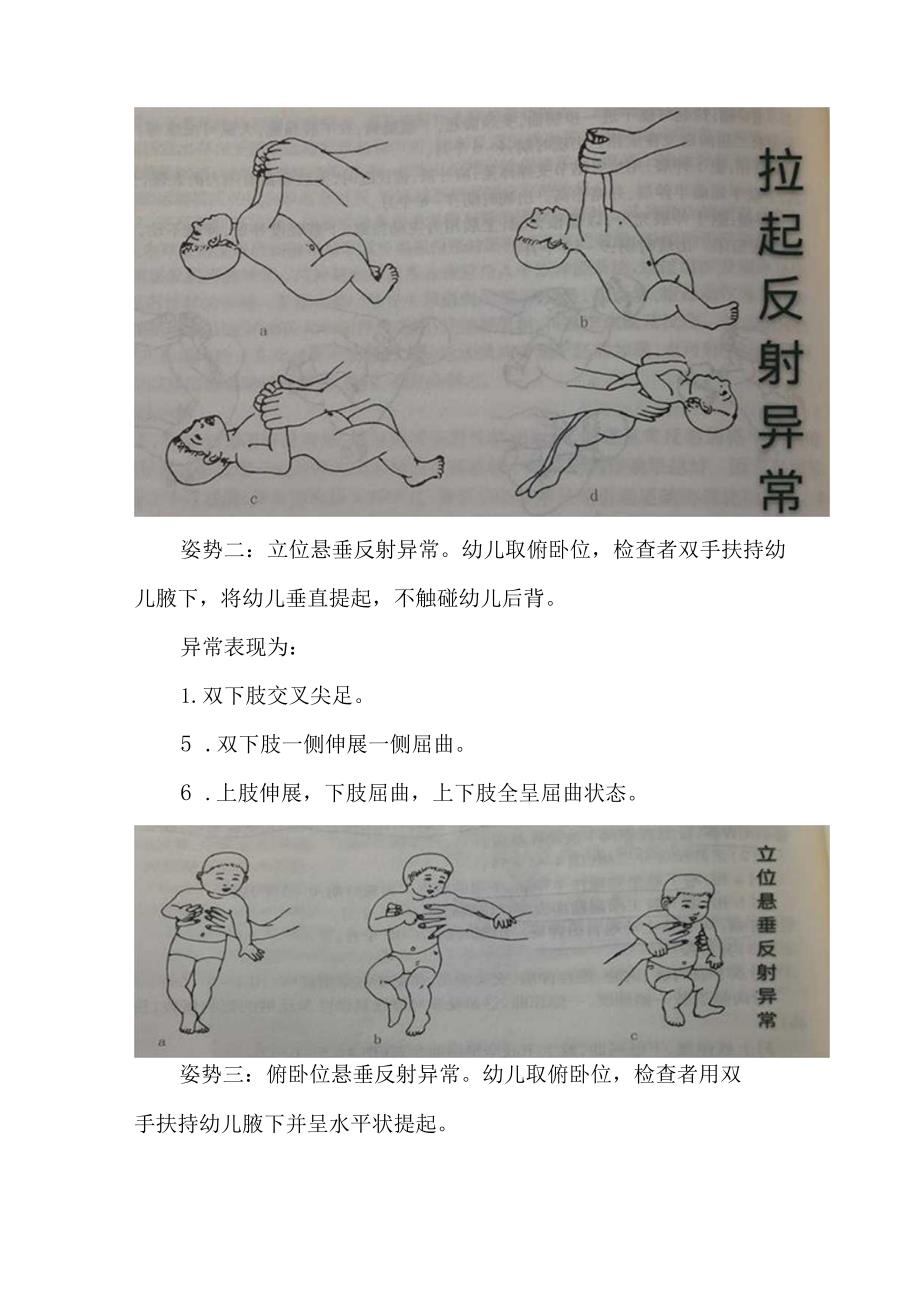 拉起反射异常
a
b
c
d
姿势二：立位悬垂反射异常。幼儿取俯卧位，检查者双手扶持幼
儿腋下，将幼儿垂直提起，不触碰幼儿后背。
异常表现为：
1.双下肢交叉尖足。
5 .双下肢一侧伸展一侧屈曲。
6 .上肢伸展，下肢屈曲，上下肢全呈屈曲状态。
立位悬垂反射异常
a
b
c
姿势三：俯卧位悬垂反射异常。幼儿取俯卧位，检查者用双
手扶持幼儿腋下并呈水平状提起。